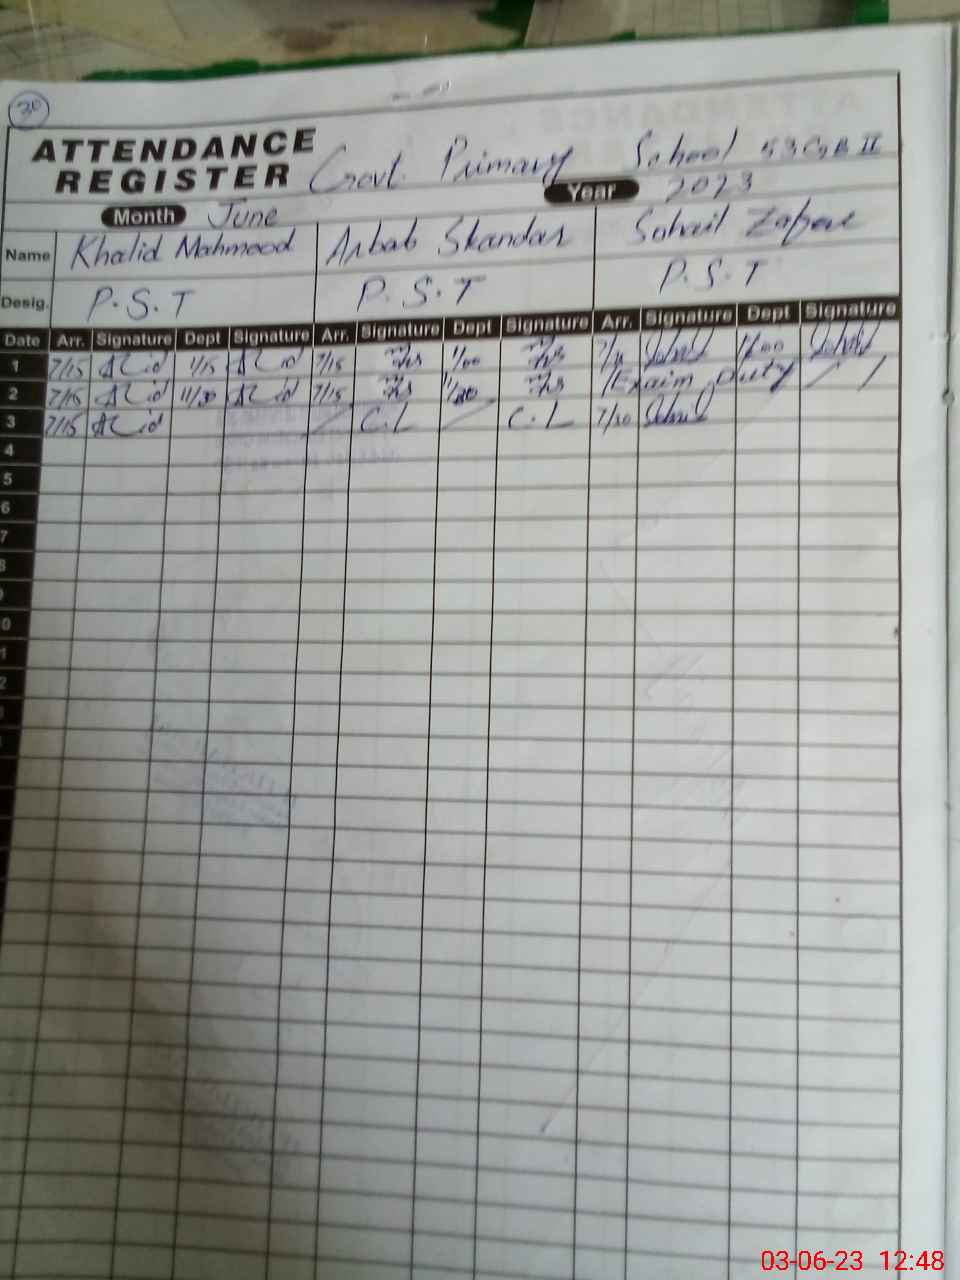 30
ATTENDANCE
REGISTER Govt. Primary School 53 GB II
Month June Year 2023
Name Khalid Mahmood Arbab Skandar Sohail Zafar
Desig. P.S.T P.S.T P.S.T
Date Arr. Signature Dept Signature Arr. Signature Dept Signature Arr. Signature Dept Signature
1 7/15 1/15 7/15 1/00 1/00
2 7/15 11/30 7/15 Exaim Duty
3 7/15 C.L C.L 7/30
4
5
6
7
8
9
0
1
2
03-06-23 12:48